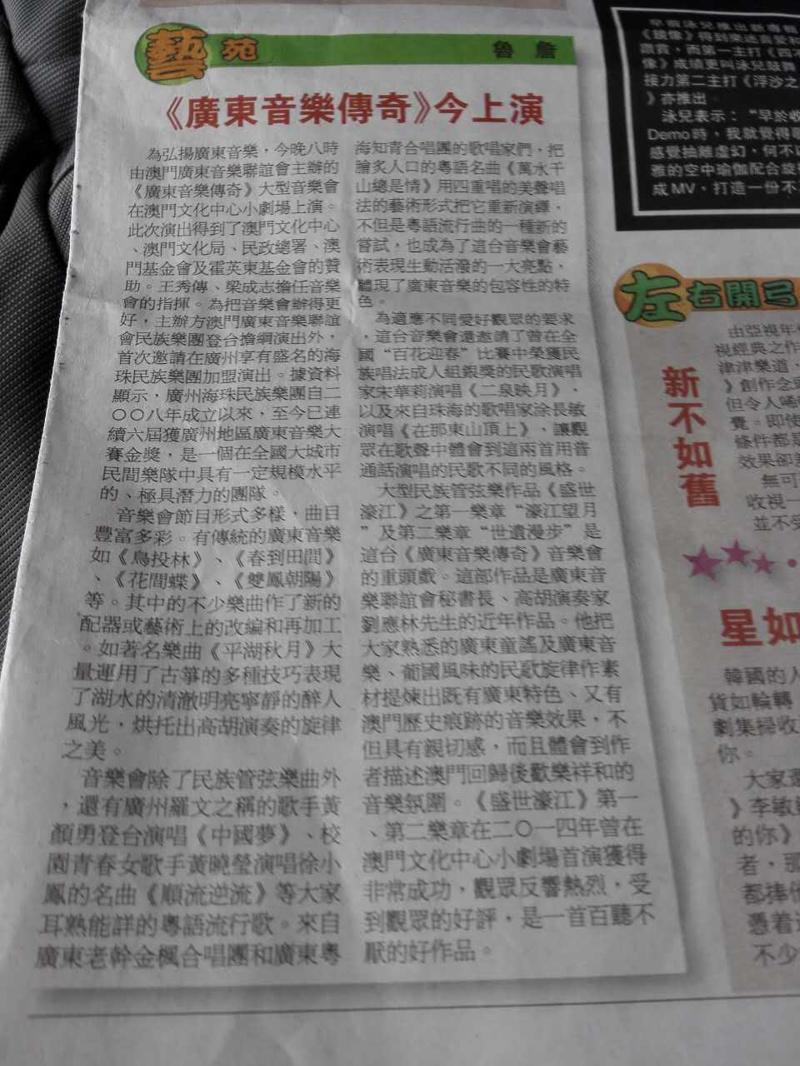 藝苑
魯詹
《廣東音樂傳奇》今上演
為弘揚廣東音樂，今晚八時
由澳門廣東音樂聯誼會主辦的
《廣東音樂傳奇》大型音樂會
在澳門文化中心小劇場上演。
此次演出得到了澳門文化中心
、澳門文化局、民政總署、澳
門基金會及霍英東基金會的贊
助。王秀傳、梁成志擔任音樂
會的指揮。為把音樂會辦得更
好，主辦方澳門廣東音樂聯誼
會民族樂團登台擔綱演出外，
首次邀請在廣州享有盛名的海
珠民族樂團加盟演出。據資料
顯示，廣州海珠民族樂團自二
○○八年成立以來，至今已連
續六屆獲廣州地區廣東音樂大
賽金獎，是一個在全國大城市
民間樂隊中具有一定規模水平
的、極具潛力的團隊。
音樂會節目形式多樣，曲目
豐富多彩。有傳統的廣東音樂
如《鳥投林》、《春到田間》
、《花間蝶》、《雙鳳朝陽》
等。其中的不少樂曲作了新的
配器或藝術上的改編和再加工
。如著名樂曲《平湖秋月》大
量運用了古箏的多種技巧表現
了湖水的清澈明亮寧靜的醉人
風光，烘托出高胡演奏的旋律
之美。
音樂會除了民族管弦樂曲外
，還有廣州羅文之稱的歌手黃
顏勇登台演唱《中國夢》、校
園青春女歌手黃曉瑩演唱徐小
鳳的名曲《順流逆流》等大家
耳熟能詳的粵語流行歌。來自
廣東老幹金楓合唱團和廣東粵
海知青合唱團的歌唱家們，把
膾炙人口的粵語名曲《萬水千
山總是情》用四重唱的美聲唱
法的藝術形式把它重新演繹，
不但是粵語流行曲的一種新的
嘗試，也成為了這台音樂會藝
術表現生動活潑的一大亮點，
體現了廣東音樂的包容性的特
色。
為適應不同愛好觀眾的要求
，這台音樂會還邀請了曾在全
國“百花迎春”比賽中榮獲民
族唱法成人組銀獎的民歌演唱
家朱華莉演唱《二泉映月》，
以及來自珠海的歌唱家涂長敏
演唱《在那東山頂上》，讓觀
眾在歌聲中體會到這兩首用普
通話演唱的民歌不同的風格。
大型民族管弦樂作品《盛世
濠江》之第一樂章“濠江望月
”及第二樂章“世遺漫步”是
這台《廣東音樂傳奇》音樂會
的重頭戲。這部作品是廣東音
樂聯誼會秘書長、高胡演奏家
劉應林先生的近年作品。他把
大家熟悉的廣東童謠及廣東音
樂、葡國風味的民歌旋律作素
材提煉出既有廣東特色、又有
澳門歷史痕跡的音樂效果，不
但具有親切感，而且體會到作
者描述澳門回歸後歡樂祥和的
音樂氛圍。《盛世濠江》第一
、第二樂章在二○一四年曾在
澳門文化中心小劇場首演獲得
非常成功，觀眾反響熱烈，受
到觀眾的好評，是一首百聽不
厭的好作品。
早前泳兒推出新專輯
《鏡像》得到樂迷真摯
讚賞，而第一主打《四
像》成績更叫泳兒鼓舞
接力第二主打《浮沙之
》亦推出
泳兒表示：“早於收
Demo時，我就覺得歌
感覺抽離虛幻，何不以
雅的空中瑜伽配合旋
成MV，打造一份不
左右開弓
新不如舊
由亞視年代
視經典之作
津津樂道，
》創作念頭
但令人唏
覺。即使
條件都是
效果卻
無可
收視一
並不受
星如
韓國的人
貨如輪轉
劇集掃收
你。
大家還
》李敏
的你》
者，那
都捧他
憑着
不少